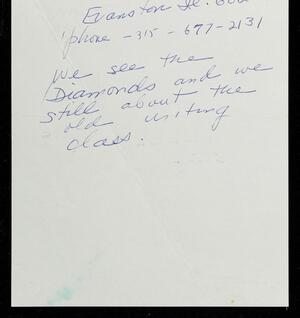 Evanston Il. 602
'phone - 315 - 677-2131
We see the
Diamonds and we
still about the
old writing
class.